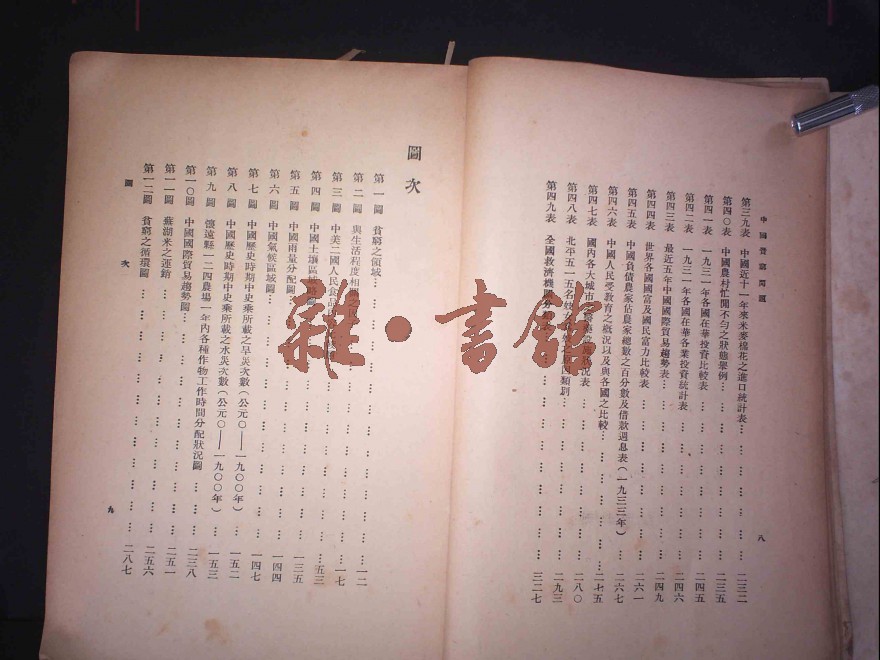 中國貧窮問題
第三九表 中國近十一年來米麥棉花之進口統計表 二三二
第四〇表 中國農村忙閒不勻之狀態舉例 二三五
第四一表 一九三一年各國在華投資比較表 二四五
第四二表 一九三一年各國在華各業投資統計表 二四六
第四三表 最近五年中國國際貿易趨勢表 二四九
第四四表 世界各國國富及國民富力比較表 二六一
第四五表 中國負債農家佔農家總數之百分數及借款週息表(一九三三年) 二六七
第四六表 中國人民受教育之概況以及與各國之比較 二七五
第四七表 國內各大城市 況表 二八〇
第四八表 北平五一五名妓女 類別 二九三
第四九表 全國救濟機關 三二七
八
圖次
第一圖 貧窮之領域 一二
第二圖 與生活程度相關之 一七
第三圖 中美二國人民食品 五三
第四圖 中國土壤區域 一三五
第五圖 中國雨量分配圖 一四四
第六圖 中國氣候區域圖 一四七
第七圖 中國歷史時期中史乘所載之旱災次數(公元〇——一九〇〇年) 一五二
第八圖 中國歷史時期中史乘所載之水災次數(公元〇——一九〇〇年) 一五三
第九圖 懷遠縣一二四農場一年內各種作物工作時間分配狀況圖 二三八
第一〇圖 中國國際貿易趨勢圖 二五一
第一一圖 蕪湖米之運銷 二五六
第一二圖 貧窮之循環圖 二八七
圖次
九
雜·書館